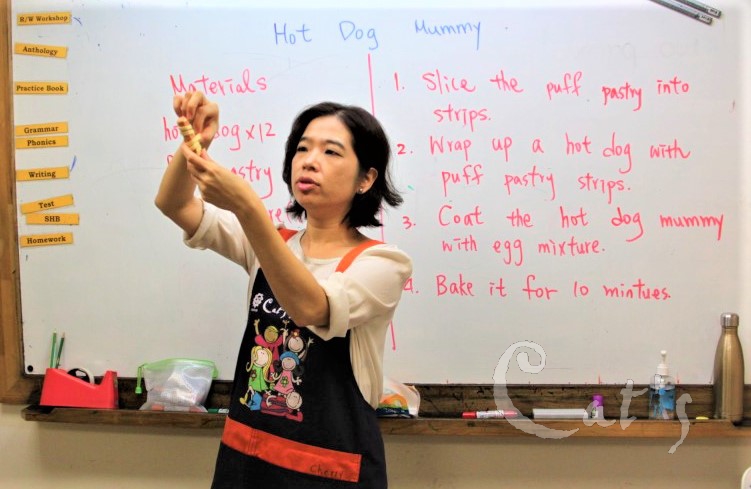 H/W Workshop
Anthology
Practice Book
Grammar
Phonics
Writing
Test
SHB
Homework
Hot Dog Mummy
Materials
hot dog x12
pastry
1. Slice the puff pastry into
strips.
2. Wrap up a hot dog with
puff pastry strips.
3. Coat the hot dog mummy
with egg mixture.
4. Bake it for 10 mintues.
Cherry
Cat's